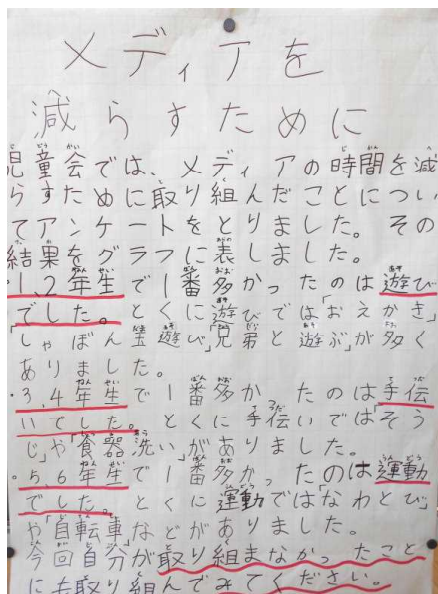 メディアを
減らすために
児童会では、メディアの時間を減
らすために取り組んだことについ
てアンケートをとりました。その
結果をグラフに表しました。
・1、2年生で1番多かったのは遊び
でした。とくに遊びでは「おえかき」
「しゃぼん玉遊び」「兄弟と遊ぶ」が多く
ありました。
・3、4年生で1番多かったのは手伝
いでした。とくに手伝いでは「そう
じ」や「食器洗い」がありました。
・5、6年生で1番多かったのは運動
でした。とくに運動では「なわとび」
や「自転車」などがありました。
今回自分が取り組まなかったこと
にも取り組んでみてください。